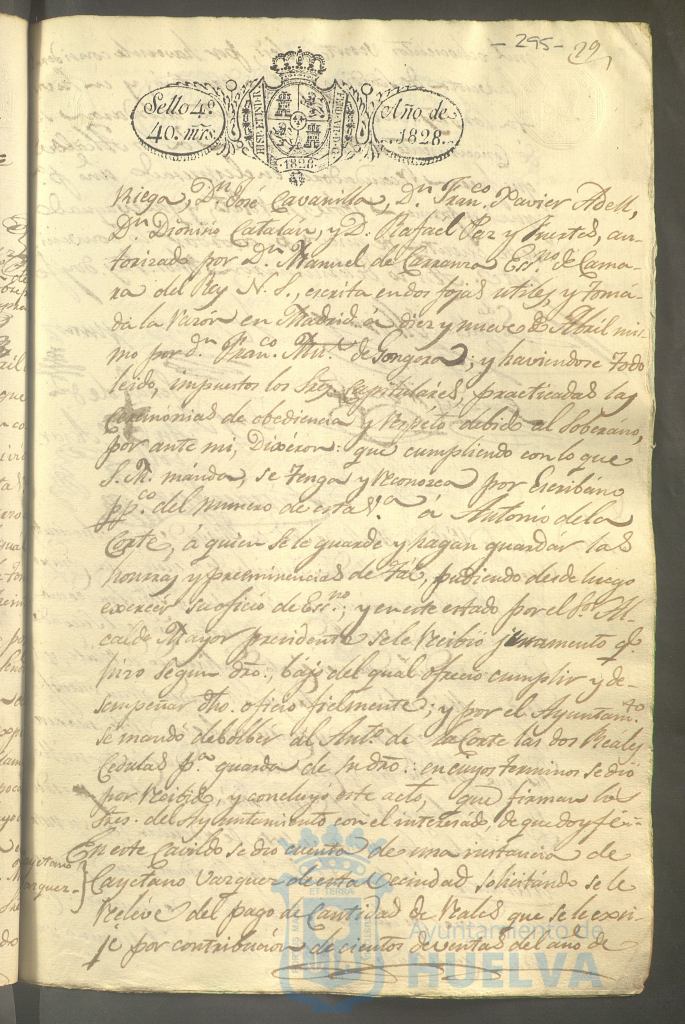 - 295 - 29
Sello 4º.
40. mrs.
HISPANIAR
1828
Año de
1828.
Riega, Dn. José Cavanilla, Dn. Franco. Xavier Adell,
Dn. Dionisio Catalán, y D. Rafael Paz y Fuertes, au-
torizada por Dn. Manuel de Carranza Essno. de Cama-
ra del Rey N. S., escrita en dos fojas utiles, y toma-
da la razón en Madrid á diez y nueve de Abril mis-
mo por dn. Franco. de Gongora; y haviendose todo
leido, impuestos los Sres. Capitulares, practicadas las
Ceremonias de obediencia y respeto debido al Soberano,
por ante mi, Dixéron: que cumpliendo con lo que
S. M. manda, se tenga y reconozca por Escribano
ppco. del numero de esta Va. á Antonio de la
Corte, á quien se le guarde y hagan guardár las
honrras y preeminencias de tal, pudiendo desde luego
exercer su oficio de Essno.; y en este estado por el Sr. Al-
calde Mayor presidente se le recibió juramento qe.
hizo segun dro., bajo del qual ofreció cumplir y de-
sempeñar dho. oficio fielmente; y por el Ayuntamto.
se mandó debolbér al Anto. de la Corte las dos Reales
Cedulas pa. guarda de su dro.: en cuyos terminos se dió
por recibido, y concluyó este acto, que firman los
Sres. del Ayuntamiento con el interesado, de que doy fé =
En este Cavildo se dio cuenta de una instancia de
Cayetano
Vazquez
Cayetano Vazquez de esta Vecindad solicitando se le
reléve del pago de Cantidad de Reales que se le exi-
je por contribución de cientos de ventas del año de
Ayuntamiento de
HUELVA